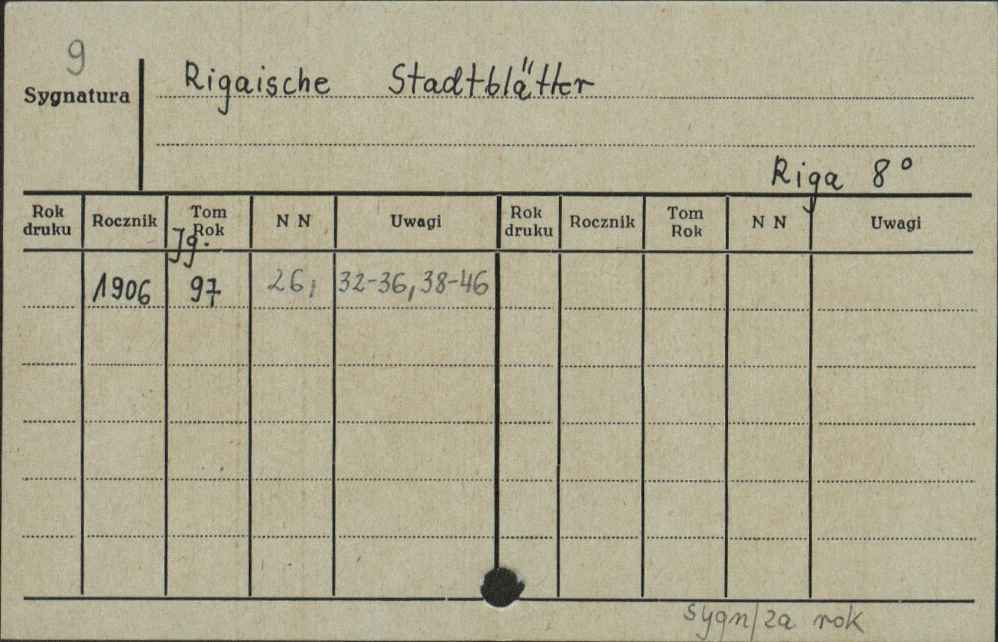 9
Sygnatura
Rigaische Stadtblätter
Riga 8°
Rok druku Rocznik Tom Rok N N Uwagi Rok druku Rocznik Tom Rok N N Uwagi
Jg.
1906 97 26, 32-36, 38-46
sygn/za rok